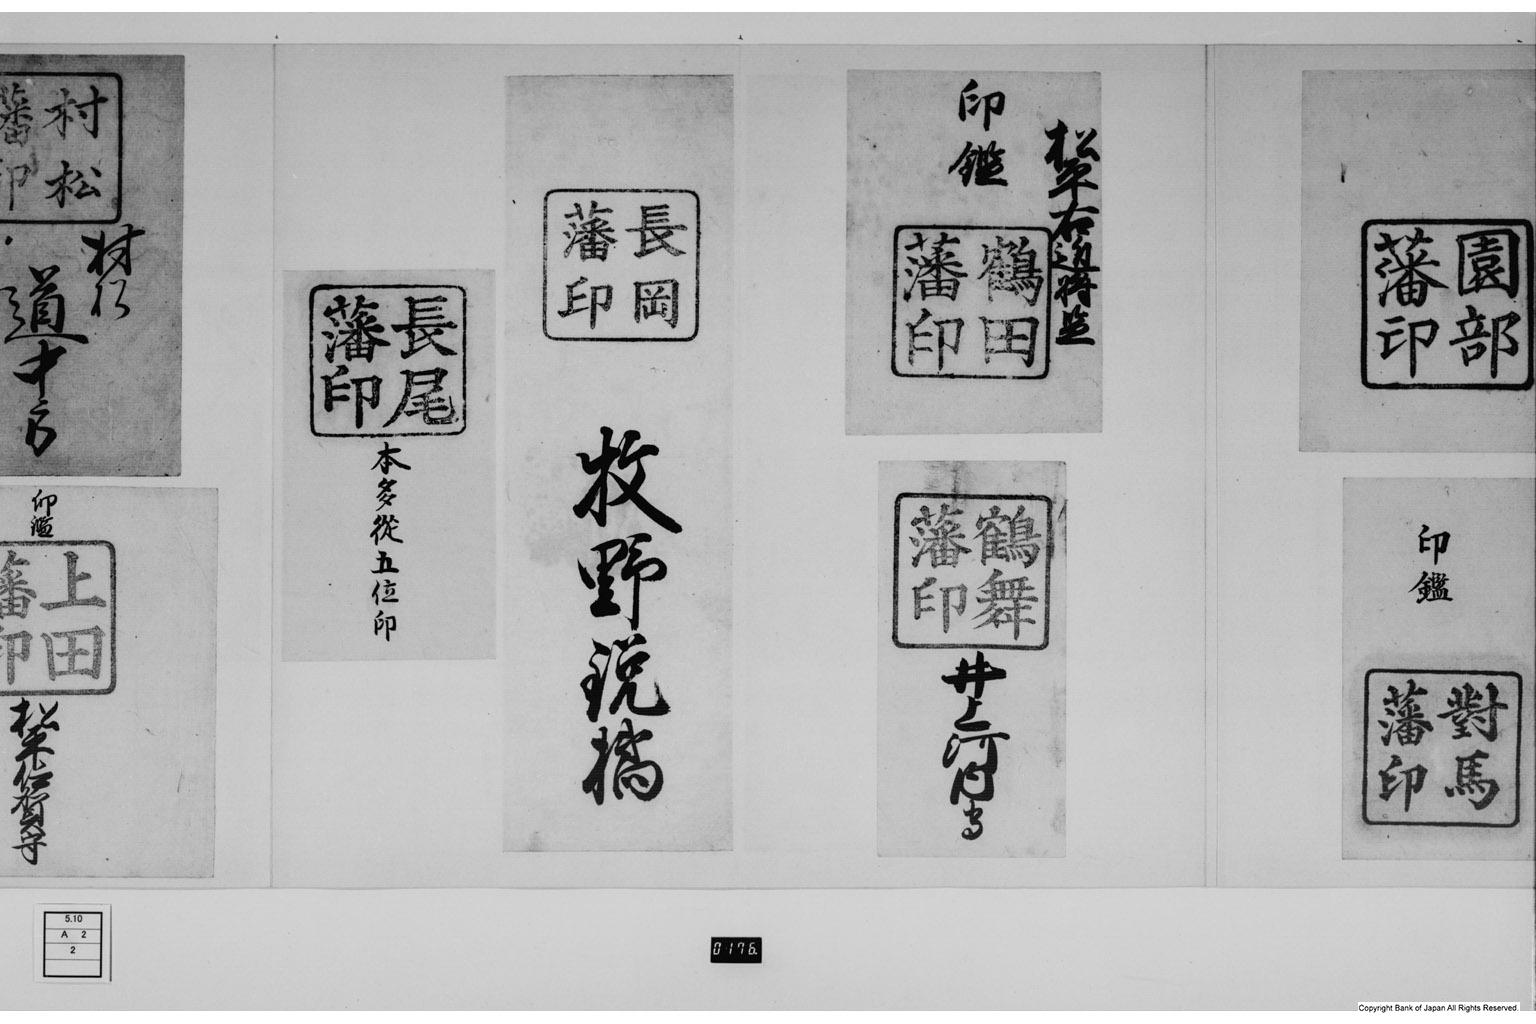 園部
藩印
印鑑
對馬
藩印
松平右近将監
印鑑
鶴田
藩印
鶴舞
藩印
井上河内守
長岡
藩印
牧野鋭橘
長尾
藩印
本多從五位印
村松
藩印
村松
道中方
印鑑
上田
藩印
松平伊賀守
5.10
A 2
2
0176
Copyright Bank of Japan All Rights Reserved.